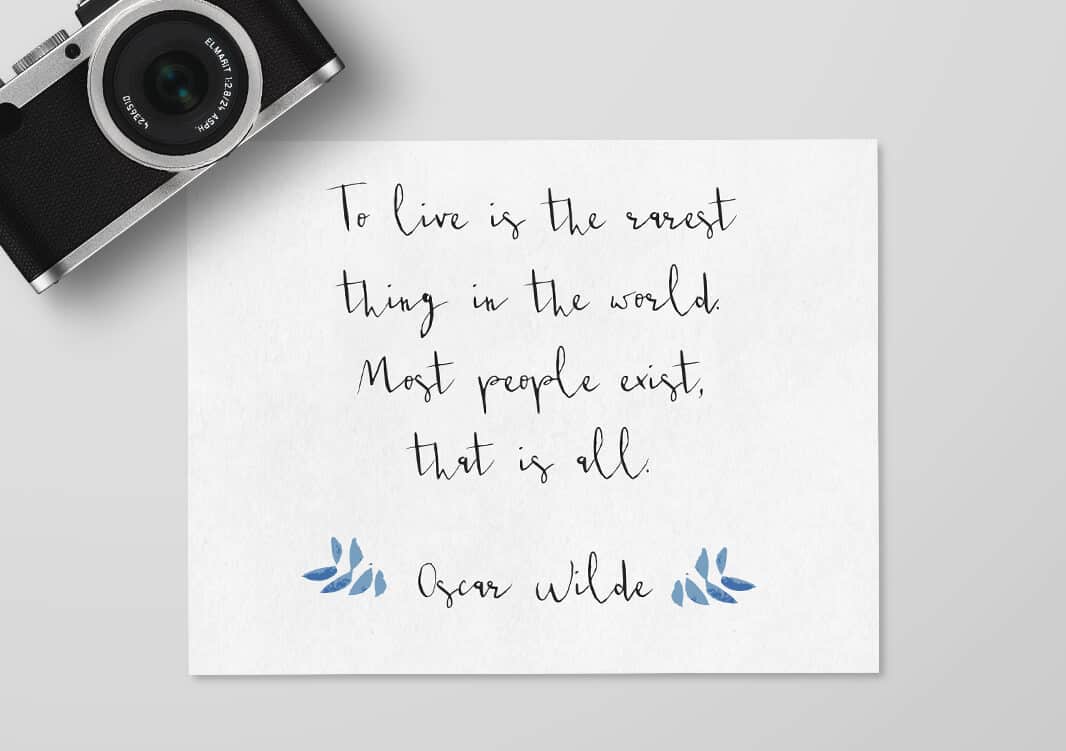 ELMARIT 1:2.8/24 ASPH.
4236510
To live is the rarest
thing in the world.
Most people exist,
that is all.
Oscar Wilde